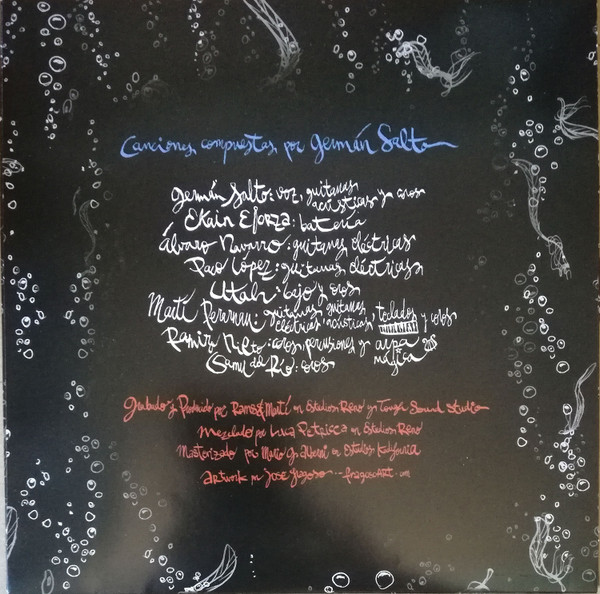 Canciones compuestas por Germán Salto
Germán Salto: voz, guitarras
acústicas y coros
Ekain Elorza: batería
Álvaro Navarro: guitarras eléctricas
Paco López: guitarras eléctricas
Utah: bajo y coros
Martí Perarnau: guitarras, guitarras, teclados y coros
eléctricas, acústicas,
Ramiro Nieto: coros, percusiones y arpa
mágica
Samu del Río: coros
Grabado y Producido por Ramiro & Martí en Estudios Reno y Tonya Sound Studio
Mezclado por Luca Petricca en Estudios Reno
Masterizado por Mario G. Alberni en Estudios Kadifornia
Artwork por Jose Fragoso